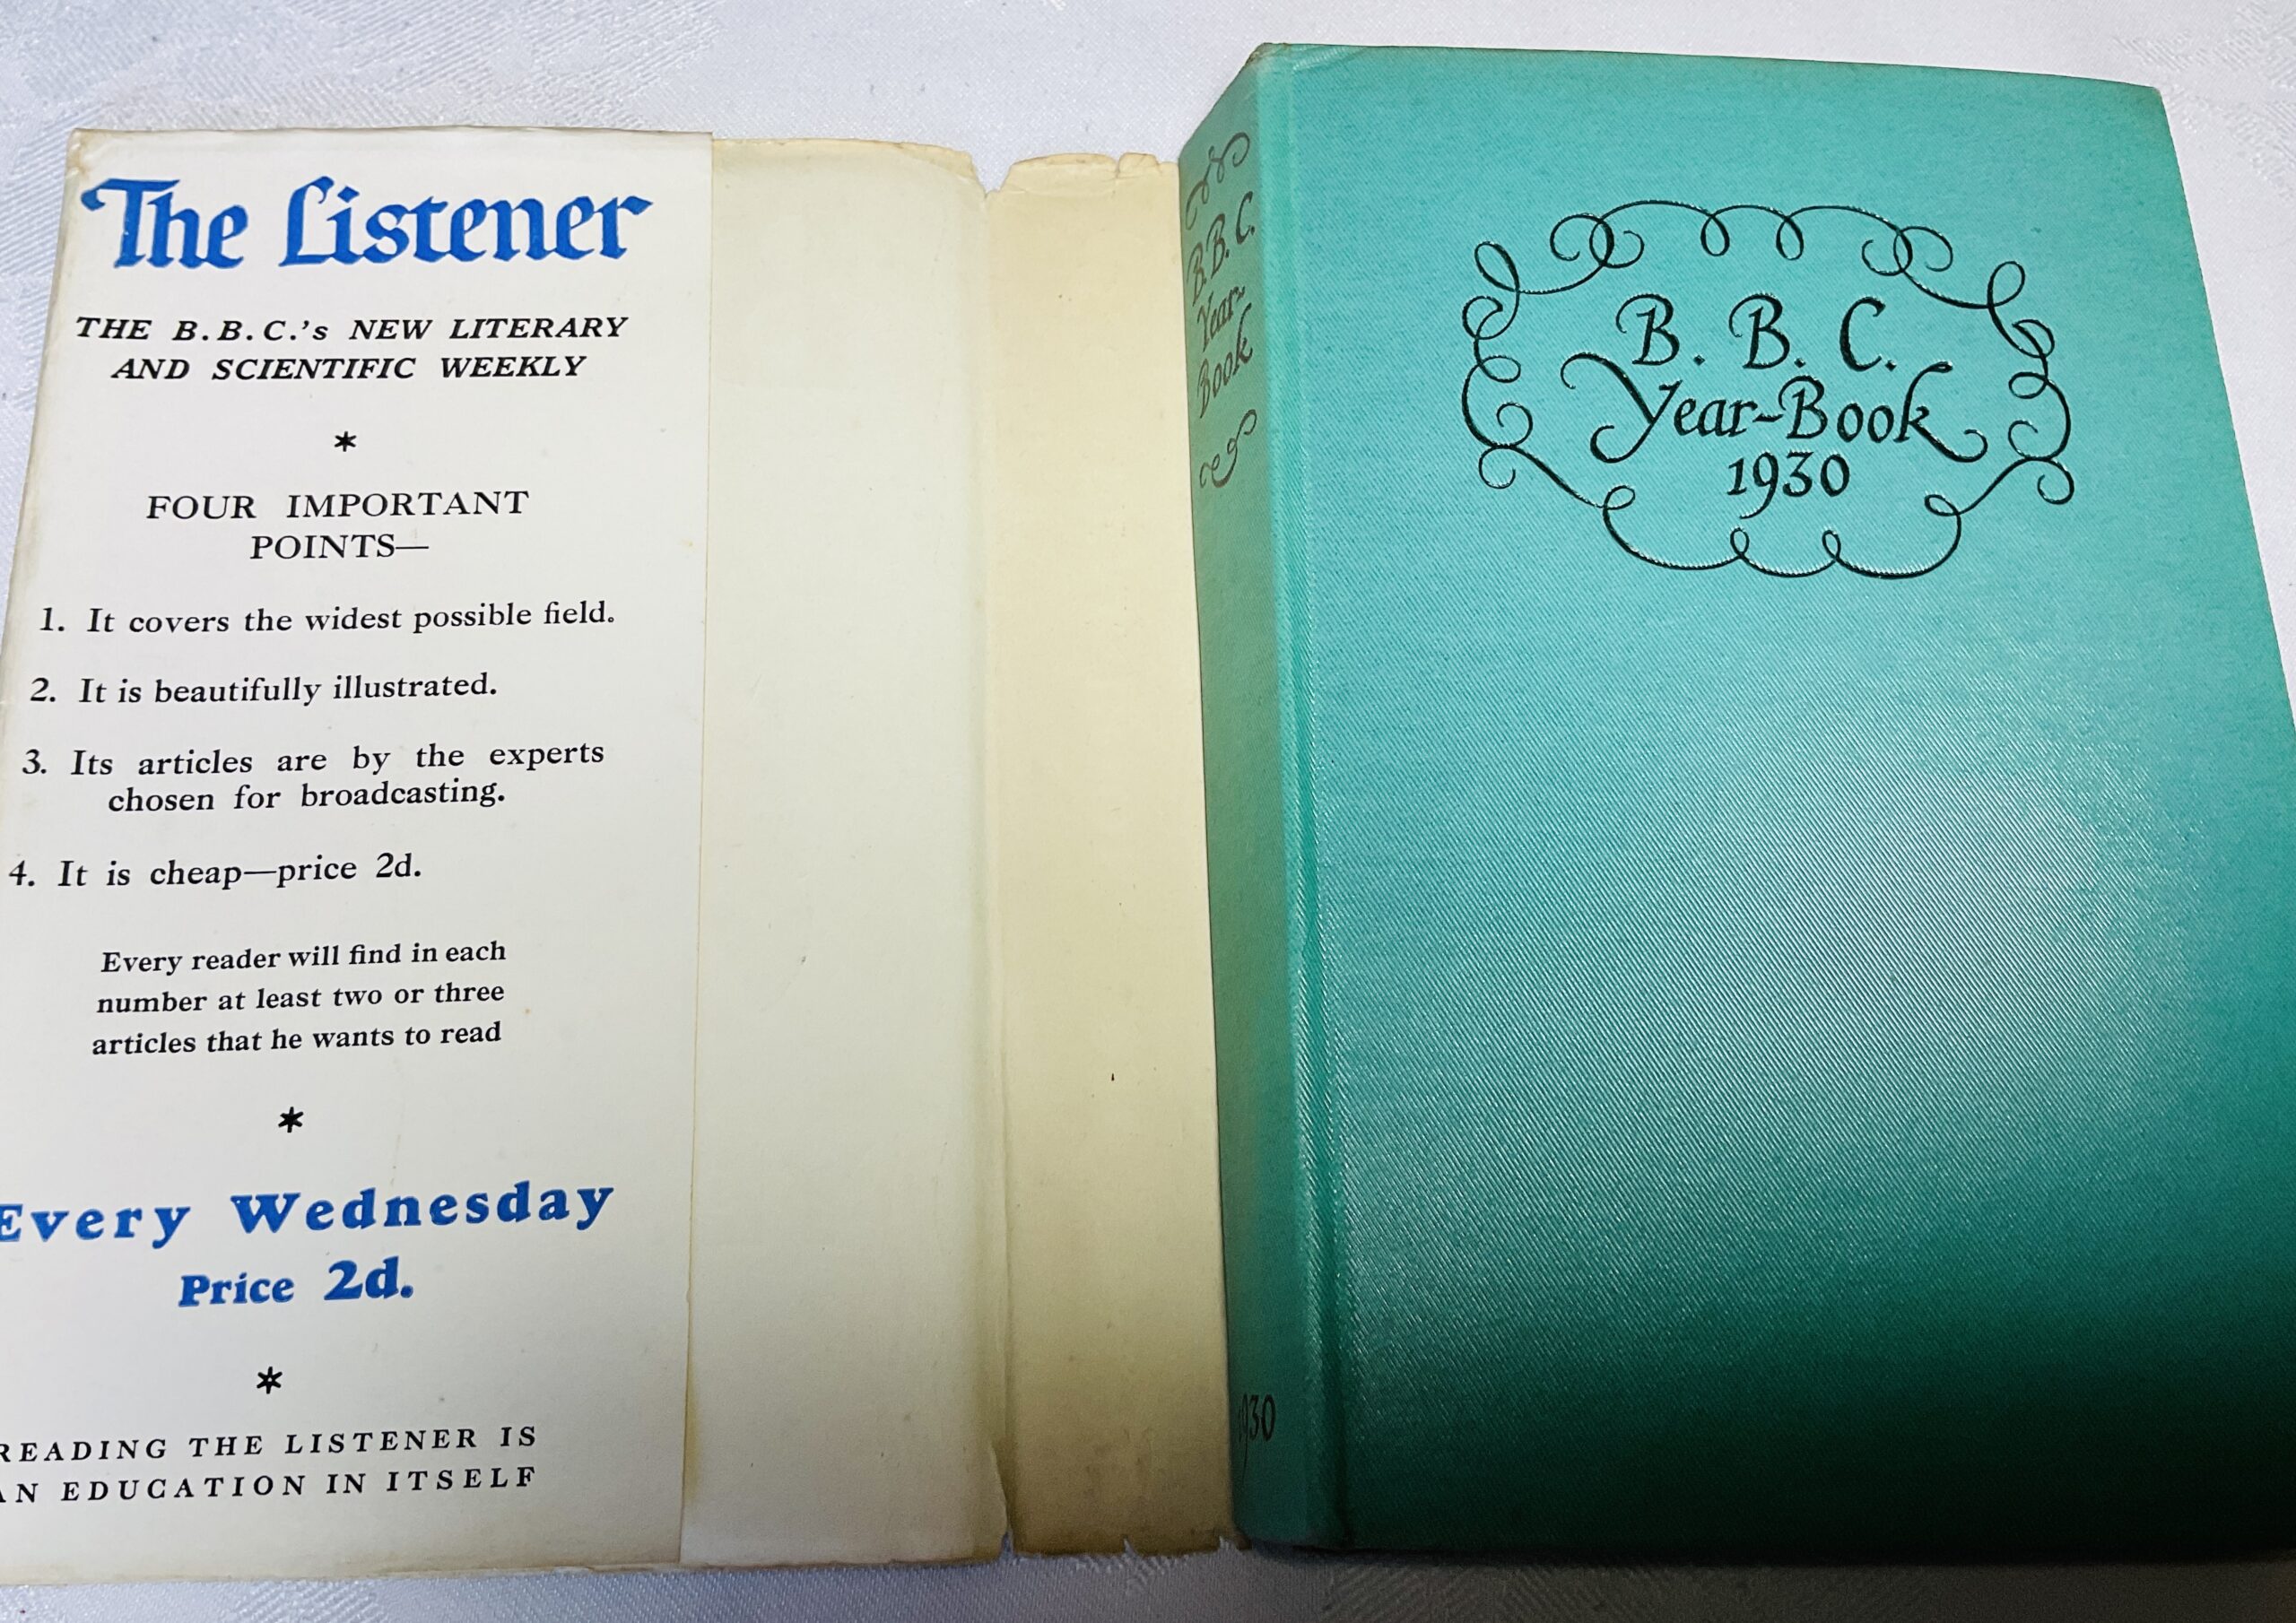 The Listener
THE B.B.C.'s NEW LITERARY
AND SCIENTIFIC WEEKLY
*
FOUR IMPORTANT
POINTS—
1. It covers the widest possible field.
2. It is beautifully illustrated.
3. Its articles are by the experts
chosen for broadcasting.
4. It is cheap—price 2d.
Every reader will find in each
number at least two or three
articles that he wants to read
*
Every Wednesday
Price 2d.
*
READING THE LISTENER IS
AN EDUCATION IN ITSELF
B.B.C.
Year-
Book
1930
B. B. C.
Year-Book
1930